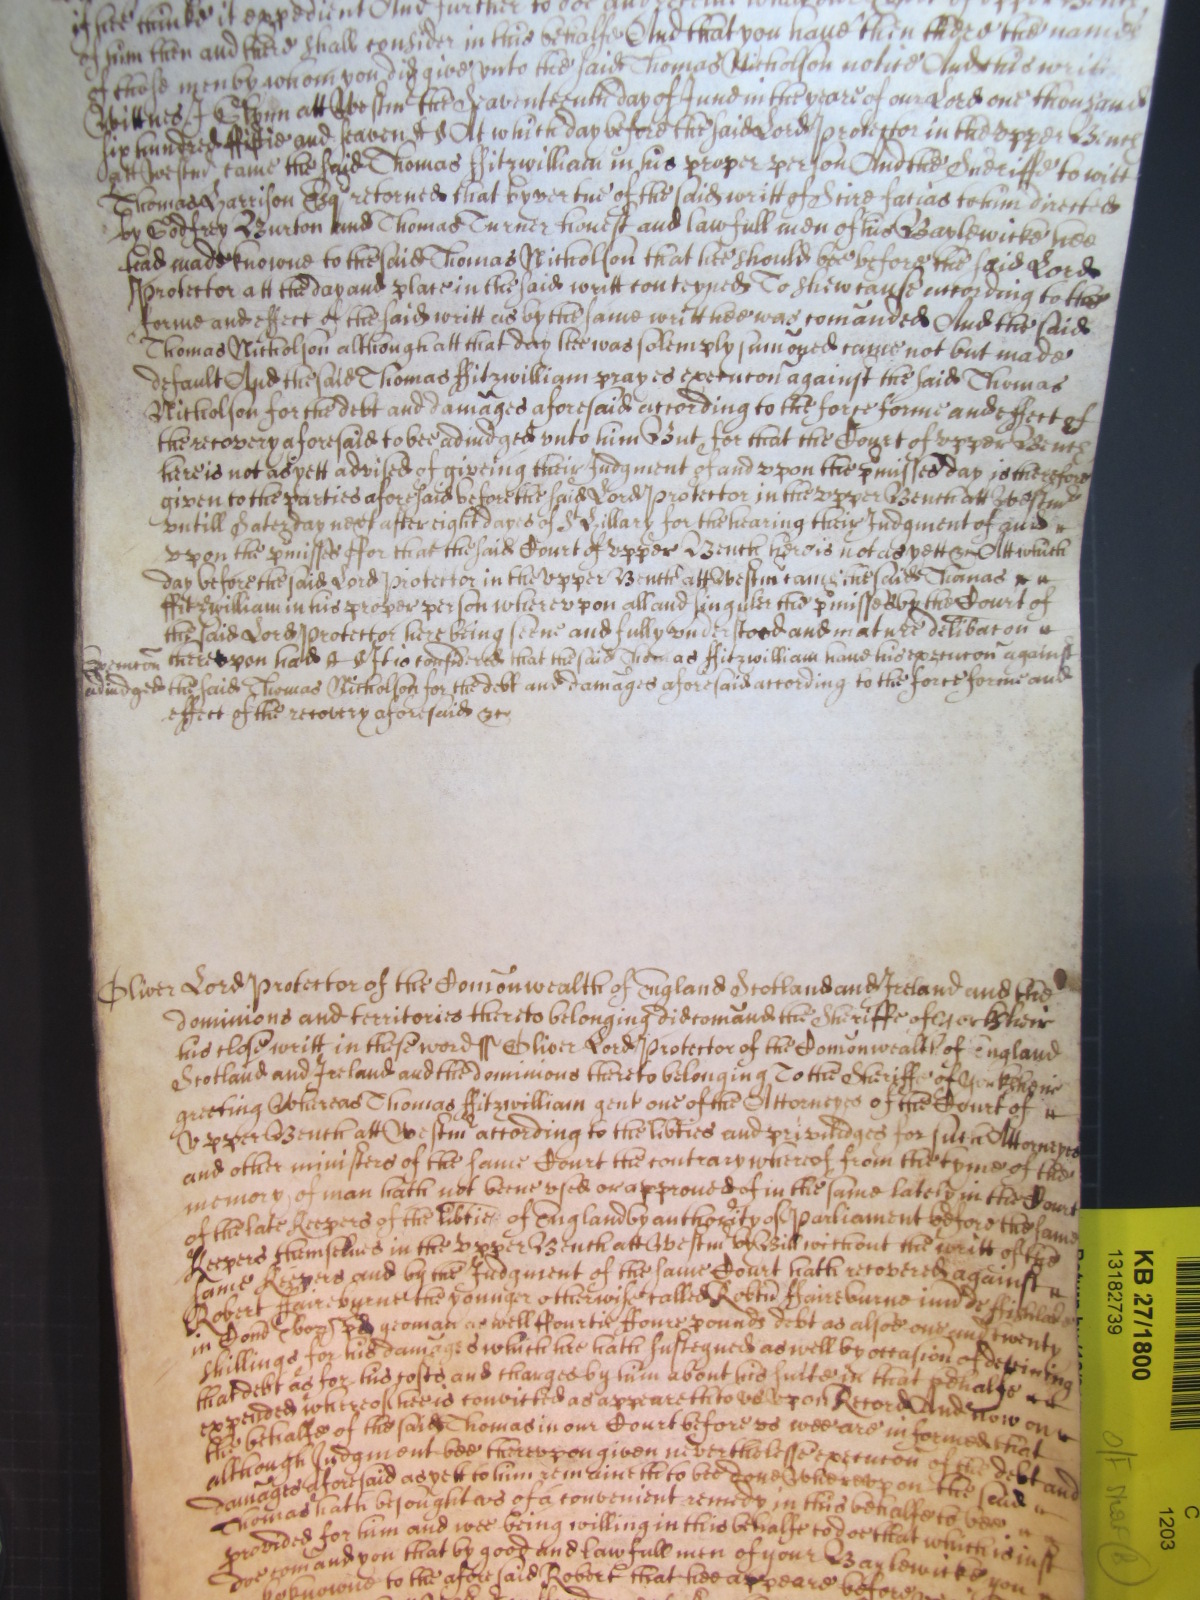 if hee thinke it expedient And further to doe and receive whatsoever the Court of upper Bench
of him then and there shall consider in this behalfe And that you have then there the names
of those men by whom you did give unto the said Thomas Nicholson notice And this writt
Wittnes J Glynn att Westmr the Seaventeenth day of June in the yeare of our Lord one thousand
six hundred fiftie and seaven &c At which day before the said Lord Protector in the upper Bench
att Westmr came the said Thomas Fitzwilliam in his proper person And the Sheriffe to witt
Thomas Harrison Esqr retorned that by vertue of the said writt of Scire facias to him directed
by Godfrey Burton and Thomas Turner honest and lawfull men of his Baylewicke hee
had made knowne to the said Thomas Nicholson that hee should bee before the said Lord
Protector att the day and place in the said writt conteyned To shew cause according to the
forme and effect of the said writt as by the same writt hee was comanded And the said
Thomas Nicholson although att that day hee was solemply sumoned came not but made
default And the said Thomas ffitzwilliam prayes execucon against the said Thomas
Nicholson for the debt and damages aforesaid according to the force forme and effect of
the recovery aforesaid to bee adiudged unto him But for that the Court of upper Bench
here is not as yett advised of giveing their Judgment of and upon the pmisses day is therefore
given to the parties aforesaid before the said Lord Protector in the upper Bench att Westmr
untill Saterday next after eight dayes of St Hillary for the hearing their Judgment of and
upon the pmisses ffor that the said Court of upper Bench here is not as yett &c Att which
day before the said Lord Protector in the upper Bench att Westmr came the said Thomas
ffitzwilliam in his proper person whereupon all and singuler the pmisses by the Court of
the said Lord Protector here being seene and fully understood and mature delibacon
Execucon thereupon had &c It is considered that the said Thomas ffitzwilliam have his execucon against
adiudged the said Thomas Nicholson for the debt and damages aforesaid according to the force forme and
effect of the recovery aforesaid &c
Oliver Lord Protector of the Comonwealth of England Scotland and Ireland and the
dominions and territories thereto belonging did comand the Sheriffe of Yorksheir
his close writt in these words ss Oliver Lord Protector of the Comonwealth of England
Scotland and Ireland and the dominions thereto belonging To the Sheriffe of Yorksheir
greeting Whereas Thomas ffitzwilliam gent one of the Attorneyes of the Court of
Upper Bench att Westmr according to the libties and priviledges for such Attorneyes
and other ministers of the same Court the contrary whereof from the tyme of the
memory of man hath not beene used or approved of in the same lately in the Court
of the late Keepers of the libtie of England by authority of Parliament before the same
Keepers themselves in the upper Bench att Westmr by Bill without the writt of the
same Keepers and by the Judgment of the same Court hath recovered against
Robert ffaireburne the younger otherwise called Robte ffaireburne iun de
in yeoman as well ffourtie ffoure pounds debt as alsoe one and twenty
shillings for his damages which hee hath susteyned as well by occasion of deteining
that debt as for his costs and charges by him about his suite in that behalfe
expended whereof hee is convicted as appeareth to us upon Record And now on
the behalfe of the said Thomas in our Court before us wee are informed that
although Judgment bee thereupon given neverthelesse execucon of the debt and
damages aforesaid as yett to him remaineth to bee done Whereupon the said
Thomas hath besought us of a convenient remedy in this behalfe to bee
provided for him and wee being willing in this behalfe to doe that which is iust
doe comand you that by good and lawfull men of your Baylewicke you
knowne to the aforesaid Robert that hee appeare before
KB 27/1800
13182739
C
1203